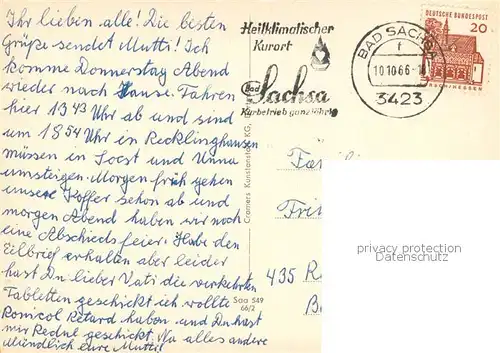 Ihr lieben alle! Die besten
Grüße sendet Mutti! Ich
komme Donnerstag Abend
wieder nach Hause. Fahren
hier 13 43 Uhr ab und sind
um 18 54 Uhr in Recklinghausen
müssen in Soest und Unna
umsteigen. Morgen früh gehen
unsere Koffer schon ab und
morgen Abend haben wir noch
eine Abschiedsfeier. Habe den
Eilbrief erhalten aber leider
hast Du lieber Vati die verkehrten
Tabletten geschickt ich wollte
Ronicol Retard haben und Du hast
mir Redul geschickt. Na alles andere
Mündlich eure Mutti!
Heilklimatischer
Kurort
Bad
Sachsa
Kurbetrieb ganzjährig
BAD SACHSA
f
10.10.66
3423
DEUTSCHE BUNDESPOST
20
LORSCH/HESSEN
Cramers Kunstanstalt KG,
Saa 549
66/2
Fa
Fri
435 R
privacy protection
Datenschutz